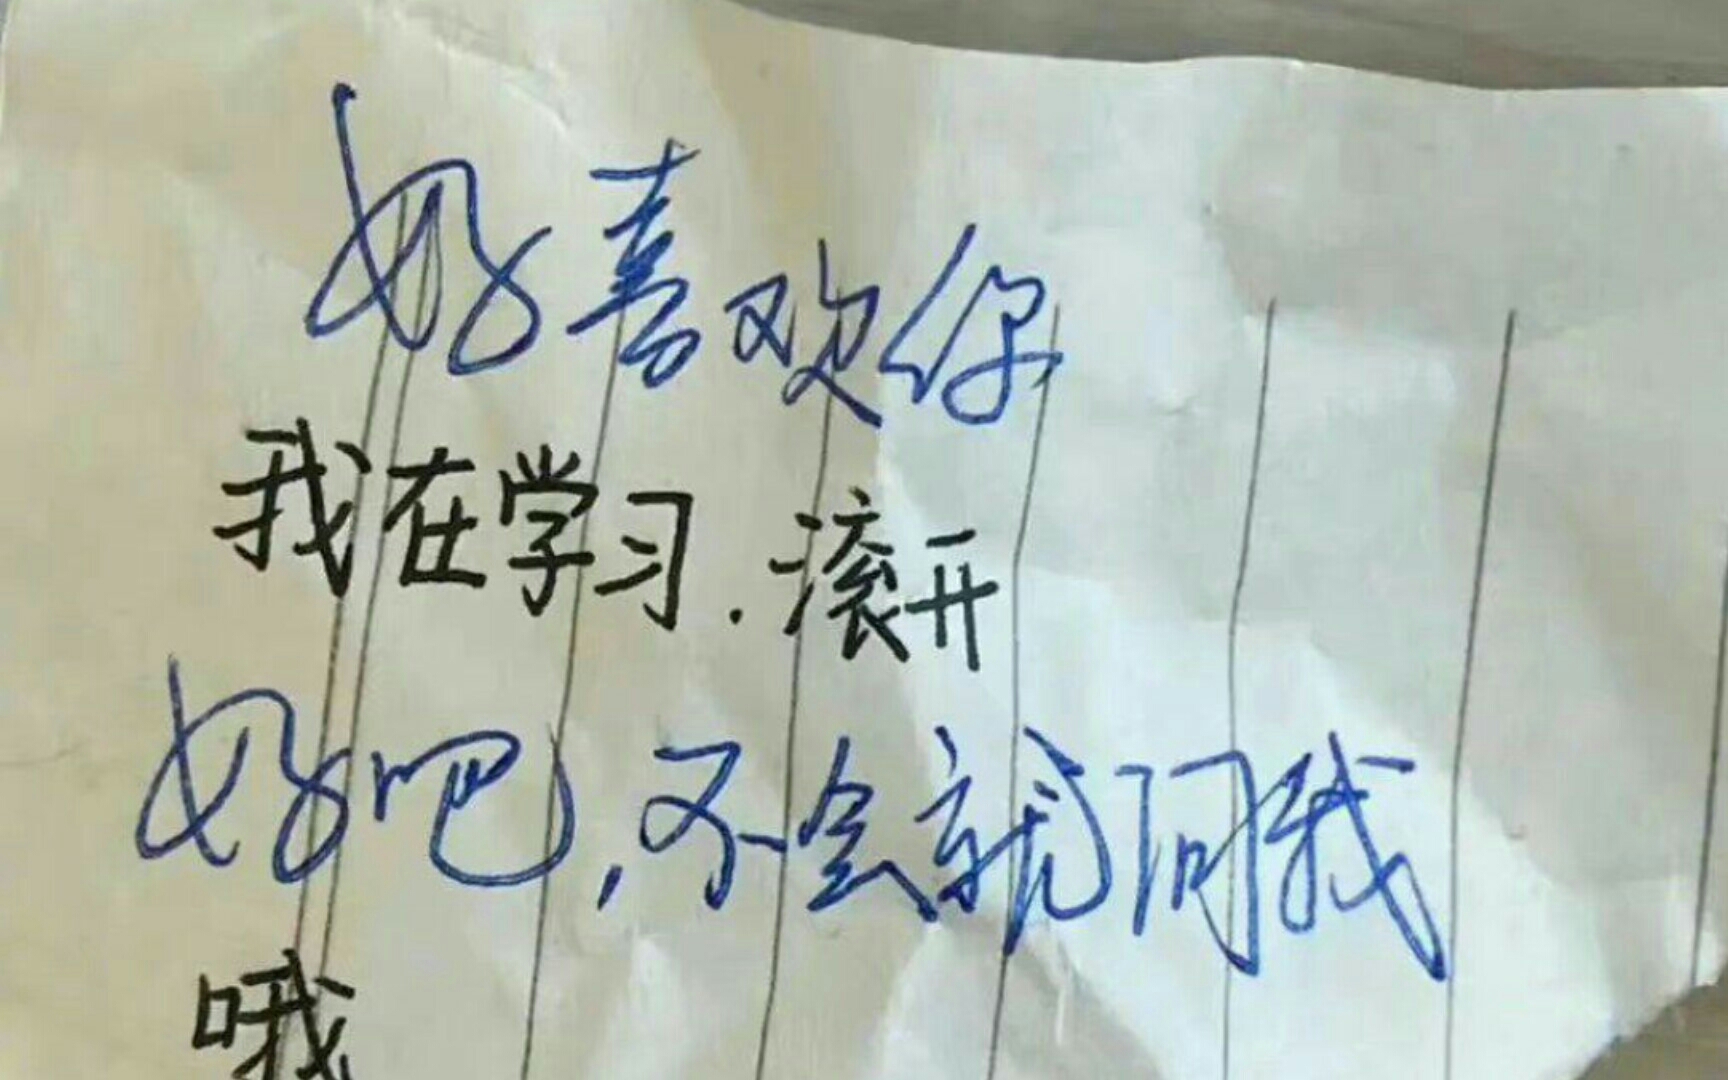 好喜欢你
我在学习.滚开
好吧,不会就问我
哦